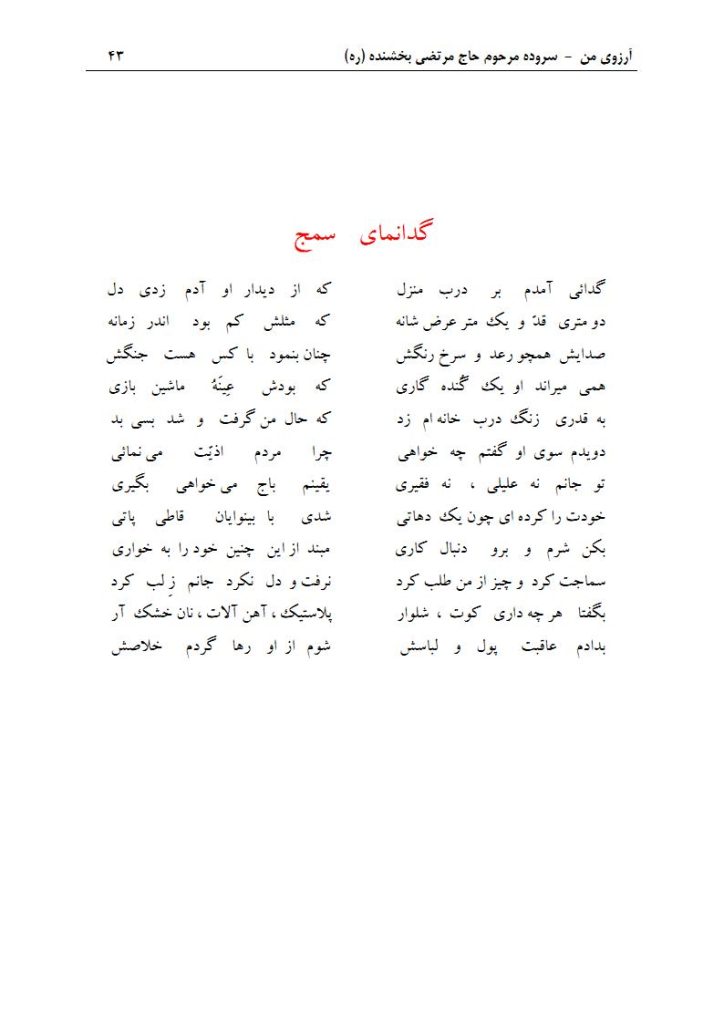 آرزوی من - سروده مرحوم حاج مرتضی بخشنده (ره) ۴۳
گدانمای سمج
گدائی آمدم بر درب منزل که از دیدار او آدم زدی دل
دو متری قدّ و یک متر عرض شانه که مثلش کم بود اندر زمانه
صدایش همچو رعد و سرخ رنگش چنان بنمود با کس هست جنگش
همی میراند او یک گُنده گاری که بودش عِینَهُ ماشین بازی
به قدری زنگ درب خانه ام زد که حال من گرفت و شد بسی بد
دویدم سوی او گفتم چه خواهی چرا مردم اذیّت می نمائی
تو جانم نه علیلی ، نه فقیری یقینم باج می خواهی بگیری
خودت را کرده ای چون یک دهاتی شدی با بینوایان قاطی پاتی
بکن شرم و برو دنبال کاری مبند از این چنین خود را به خواری
سماجت کرد و چیز از من طلب کرد نرفت و دل نکرد جانم زِ لب کرد
بگفتا هر چه داری کوت ، شلوار پلاستیک ، آهن آلات ، نان خشک آر
بدادم عاقبت پول و لباسش شوم از او رها گردم خلاصش